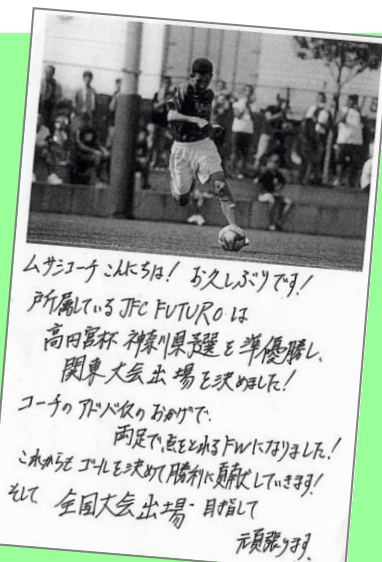 ムサシコーチこんにちは！ お久しぶりです！
所属しているJFC FUTUROは
高円宮杯 神奈川県予選を準優勝し、
関東大会出場を決めました！
コーチのアドバイスのおかげで、
両足で点をとれるFWになりました！
これからもゴールを決めて勝利に貢献していきます！
そして 全国大会出場 目指して
頑張ります。